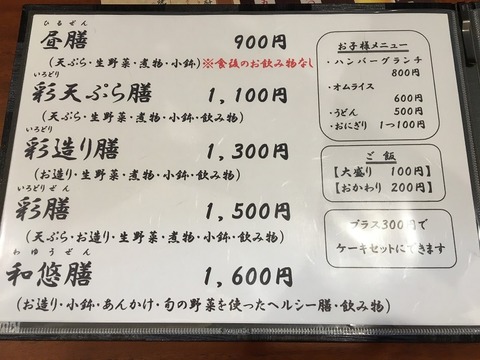 ひるぜん
昼膳 900円
(天ぷら・生野菜・煮物・小鉢)※食後のお飲み物なし
いろどり
彩天ぷら膳 1,100円
(天ぷら・生野菜・煮物・小鉢・飲み物)
いろどり
彩造り膳 1,300円
(お造り・生野菜・煮物・小鉢・飲み物)
いろどりぜん
彩膳 1,500円
(天ぷら・お造り・生野菜・煮物・小鉢・飲み物)
わゆうぜん
和悠膳 1,600円
(お造り・小鉢・あんかけ・旬の野菜を使ったヘルシー膳・飲み物)
お子様メニュー
・ハンバーグランチ
800円
・オムライス
600円
・うどん 500円
・おにぎり 1つ100円
ご飯
【大盛り 100円】
【おかわり 200円】
プラス300円で
ケーキセットにできます